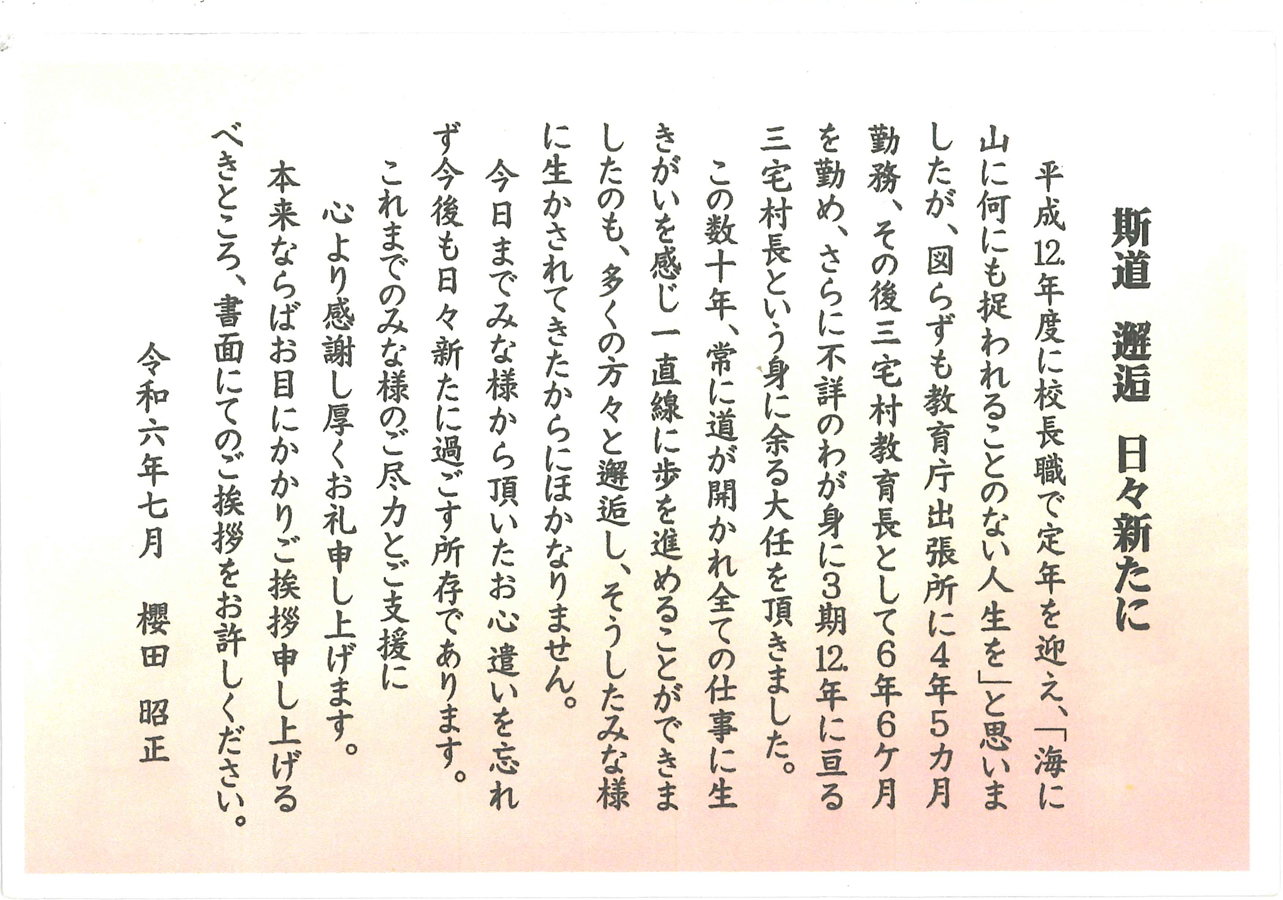 斯道　邂逅　日々新たに
平成12.年度に校長職で定年を迎え、「海に
山に何にも捉われることのない人生を」と思いま
したが、図らずも教育庁出張所に４年５カ月
勤務、その後三宅村教育長として６年６ケ月
を勤め、さらに不詳のわが身に３期12.年に亘る
三宅村長という身に余る大任を頂きました。
この数十年、常に道が開かれ全ての仕事に生
きがいを感じ一直線に歩を進めることができま
したのも、多くの方々と邂逅し、そうしたみな様
に生かされてきたからにほかなりません。
今日までみな様から頂いたお心遣いを忘れ
ず今後も日々新たに過ごす所存であります。
これまでのみな様のご尽力とご支援に
心より感謝し厚くお礼申し上げます。
本来ならばお目にかかりご挨拶申し上げる
べきところ、書面にてのご挨拶をお許しください。
令和六年七月　櫻田　昭正